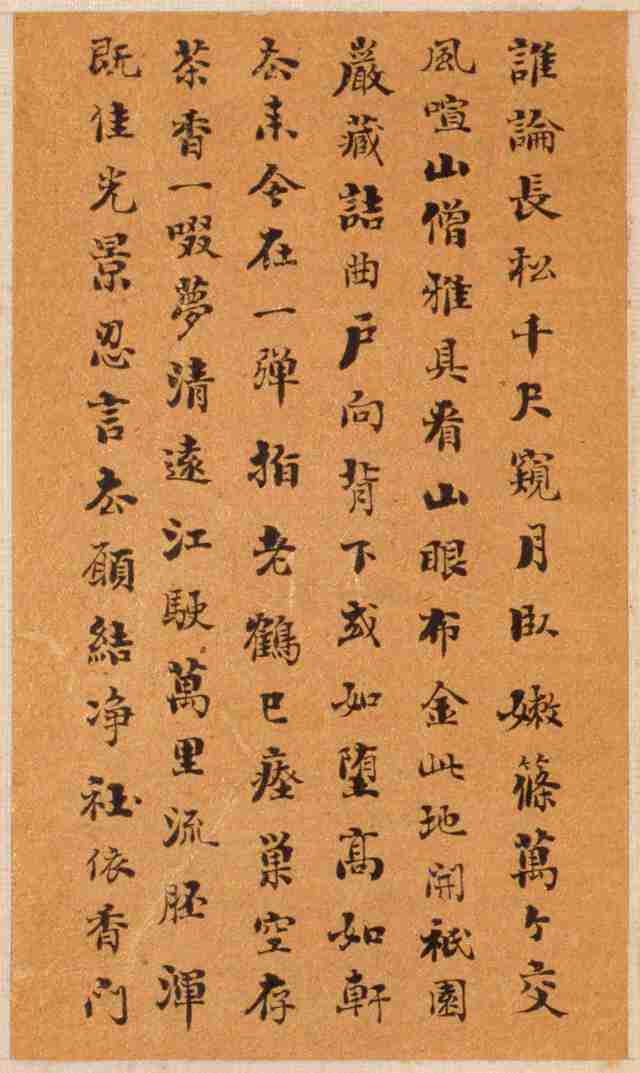 誰論長松千尺窺月臥嫩篠萬个交
風喧山僧雅具看山眼布金此地開祇園
嚴藏詰曲戶向背下或如墮高如軒
去來今在一彈指老鶴已瘞巢空存
茶香一啜夢清遠江駛萬里流胚渾
既佳光景忍言去願結净社依香門